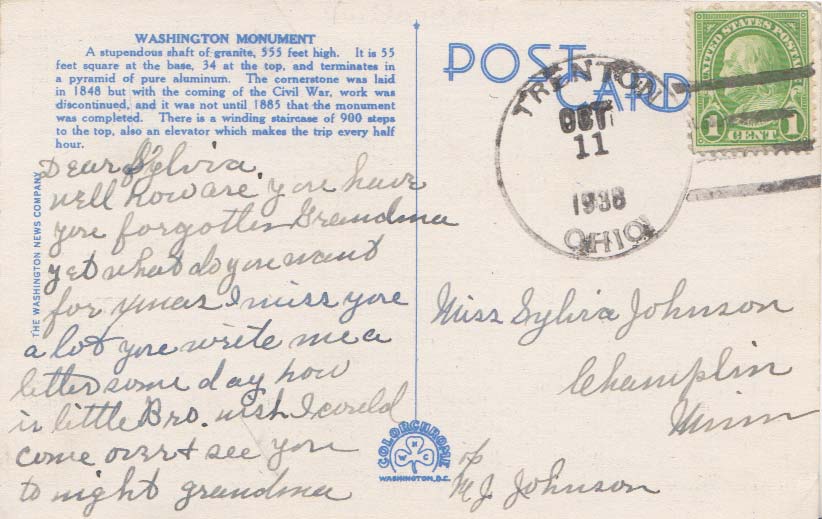 WASHINGTON MONUMENT
A stupendous shaft of granite, 555 feet high. It is 55
feet square at the base, 34 at the top, and terminates in
a pyramid of pure aluminum. The cornerstone was laid
in 1848 but with the coming of the Civil War, work was
discontinued, and it was not until 1885 that the monument
was completed. There is a winding staircase of 900 steps
to the top, also an elevator which makes the trip every half
hour.
THE WASHINGTON NEWS COMPANY
Dear Sylvia.
well how are you have
you forgotten Grandma
yet what do you want
for xmas I miss you
a lot you write me a
letter some day how
is little Bro. wish I could
come over + see you
to night grandma
POST
CARD
TRENTON
OCT
11
1938
OHIO
UNITED STATES POSTAGE
1 CENT 1
Miss Sylvia Johnson
Champlin
Minn
c/o
M J. Johnson
COLORCHROME
W N C
WASHINGTON, D.C.